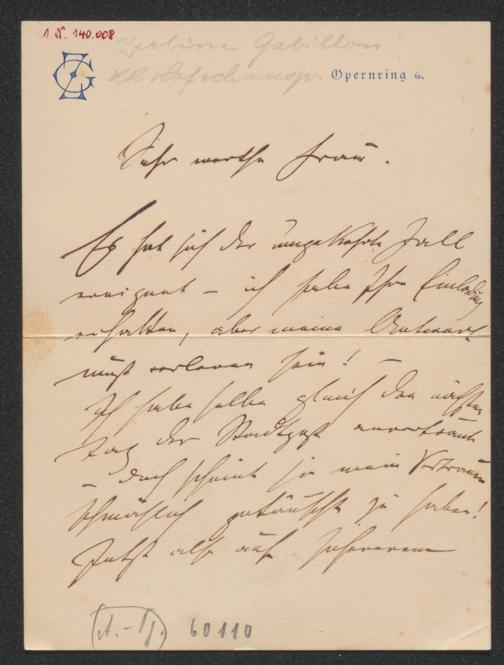 1 N. 140.008
Zerline Gabillon
KK Hofschausp. Opernring 6.
Sehr werthe Frau.
Es hat sich der umgekehrte Fall
ereignet – ich habe Ihre Einladung
erhalten, aber meine Antwort
muß verloren sein! –
Ich habe selbe gleich den nächsten
Tag der Stadtpost anvertraut
– doch scheint sie mein Vertrauen
schmählich getäuscht zu haben!
Jetzt also auf
60110